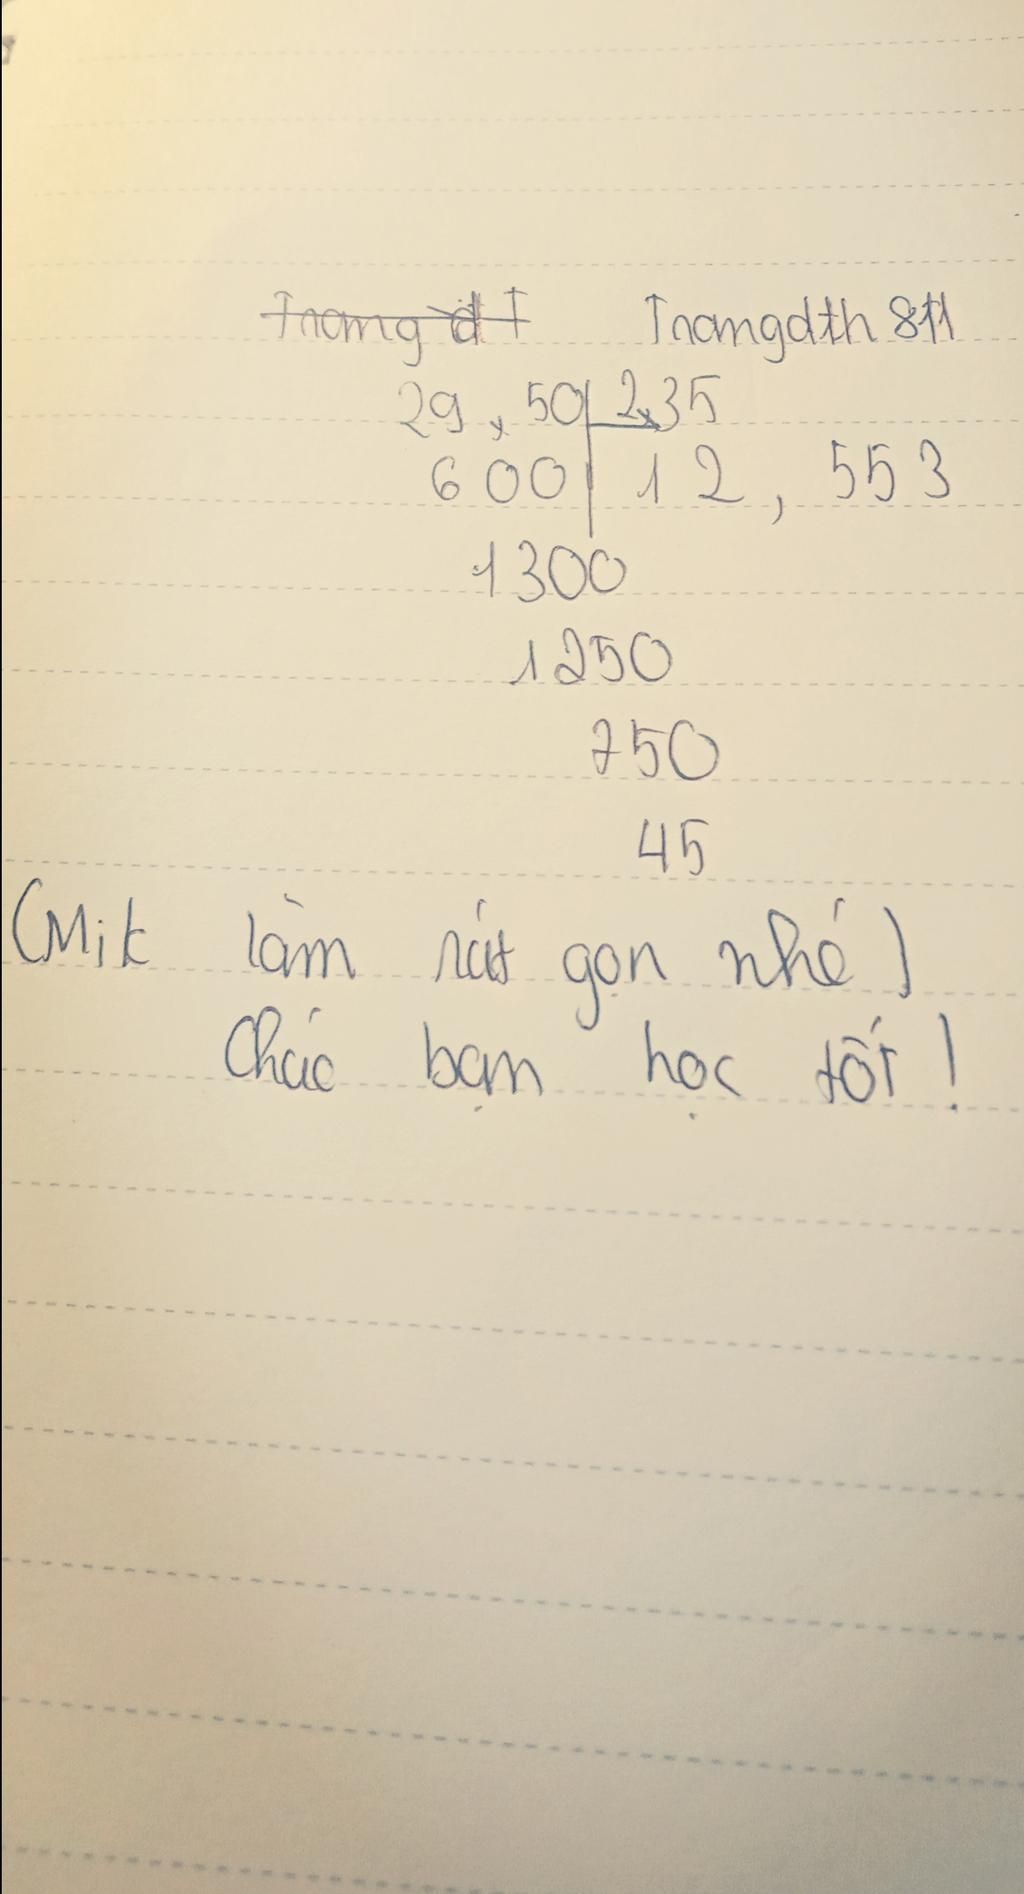 Trang d T Trangdth 811
29,50 2,35
600 12,553
1300
1250
750
45
(Mik làm rút gọn nhé)
Chúc bạn học tốt!